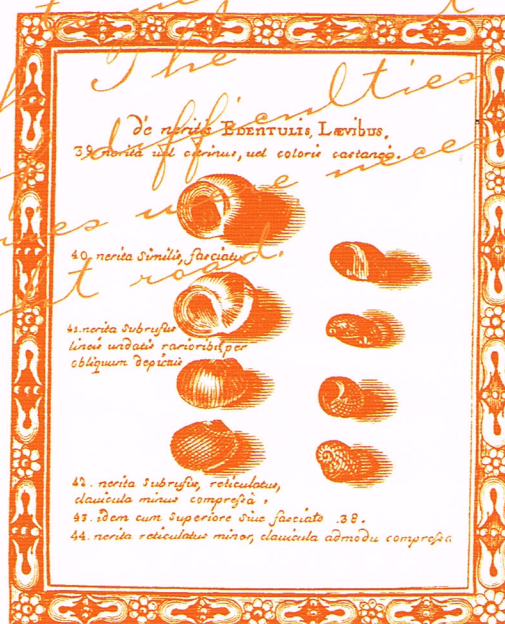 The
difficulties
were neces
road.
de neritis EDENTULIS, LÆVIBUS.
39. nerita uel citrinus, uel coloris castaneo.
40. nerita similis, fasciatus
41. nerita subrufus
lineis undatis rarioribus per
obliquum depictus
42. nerita subrufus, reticulatus,
clauicula minus compreſsâ,
43. idem cum superiore siue fasciato .38.
44. nerita reticulatus minor, clauicula admodu compreſsa